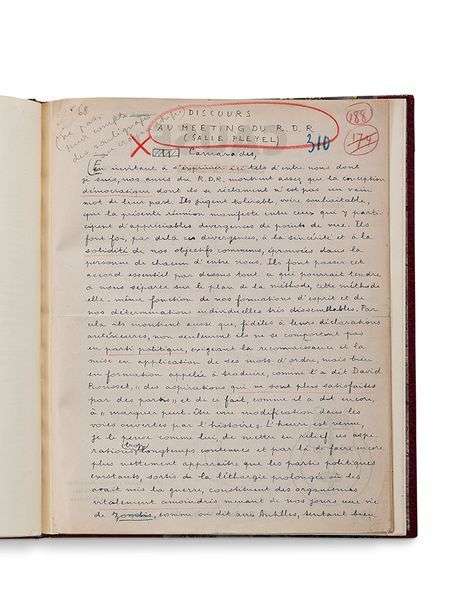 68
DISCOURS
AU MEETING DU R.D.R
(SALLE PLEYEL)
310
188
174
Camarades,
En invitant à s'exprimer ici tels d'entre nous dont
je suis, nos amis du R.D.R. montrent assez que la conception
démocratique dont ils se réclament n'est pas un vain
mot de leur part. Ils jugent tolérable, voire souhaitable,
que la présente réunion manifeste entre ceux qui y parti-
cipent d'appréciables divergences de points de vue. Ils
font foi, par delà ces divergences, à la sincérité et à la
solidité de nos objectifs communs, éprouvées dans la
personne de chacun d'entre nous. Ils font passer cet
accord essentiel par dessus tout ce qui pourrait tendre
à nous séparer sur le plan de la méthode, cette méthode
elle-même fonction de nos formations d'esprit et de
nos déterminations individuelles très dissemblables. Par
là ils montrent aussi que, fidèles à leurs déclarations
antérieures, non seulement ils ne se comportent pas
en parti politique, exigeant la reconnaissance et la
mise en application de ses mots d'ordre, mais bien
en formation appelée à traduire, comme l'a dit David
Rousset, "des aspirations qui ne sont plus satisfaites
par des partis", et de ce fait, comme il a dit encore,
à "marquer peut-être une modification dans les
voies ouvertes par l'histoire". L'heure est venue,
je le pense comme lui, de mettre en relief ces aspi-
rations longtemps contenues et par là de faire encore
plus nettement apparaître que les partis politiques
existants, sortis de la léthargie prolongée où les
avait mis la guerre, constituent des organismes
vitalement amoindris menant de nos jours une vie
de zombis, comme on dit aux Antilles, sentant bien